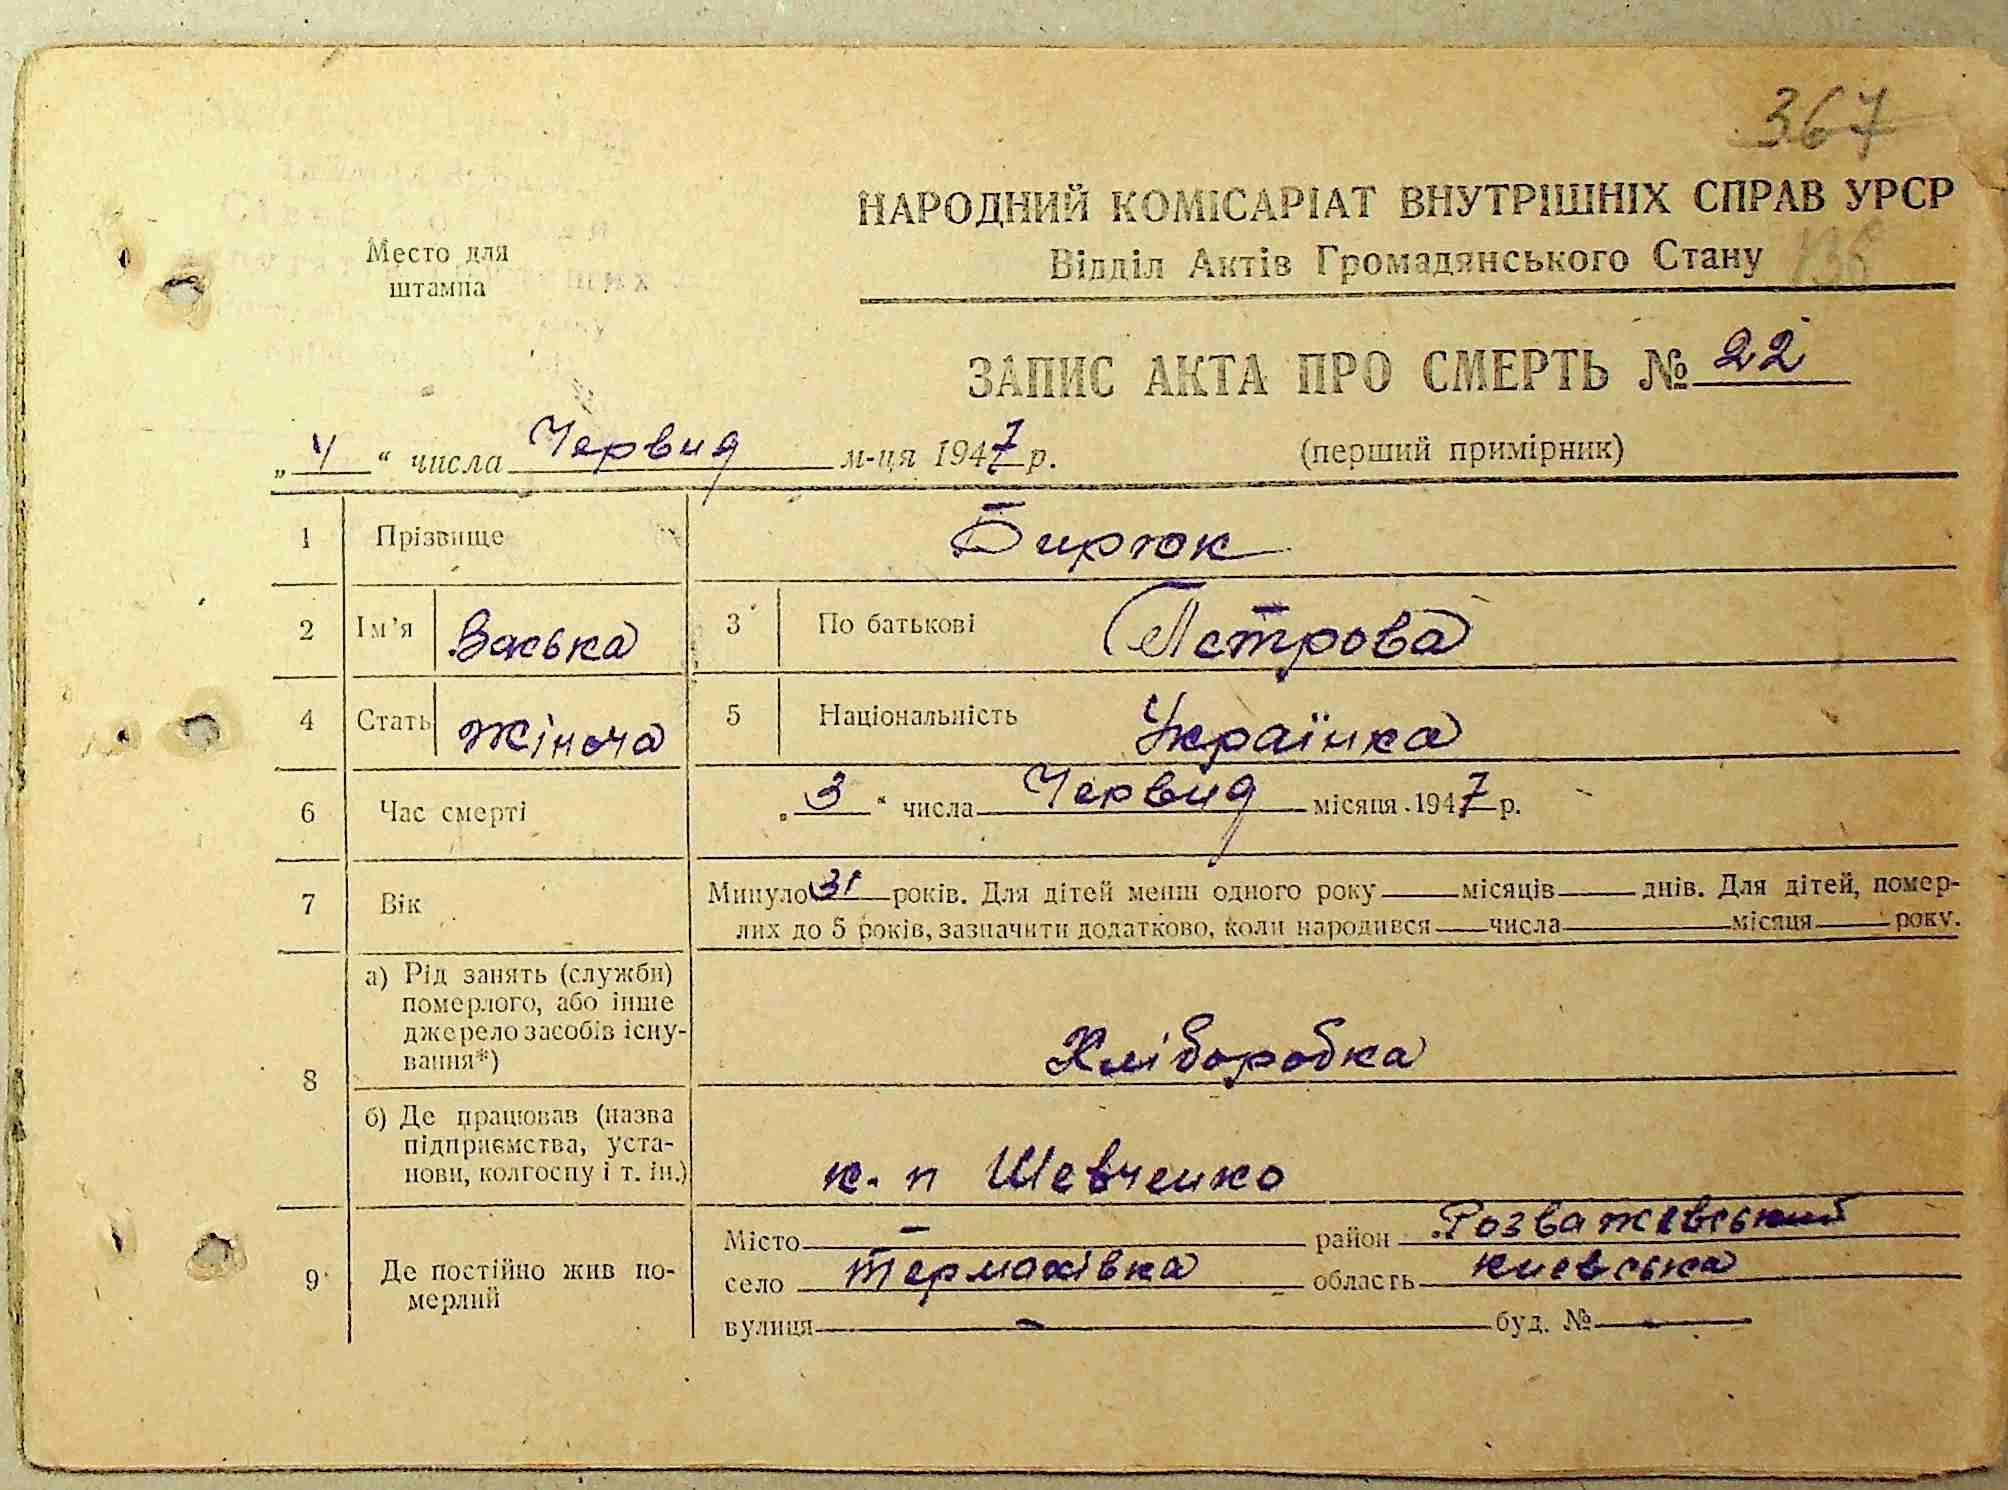 367
НАРОДНИЙ КОМІСАРІАТ ВНУТРІШНІХ СПРАВ УРСР
Место для
штампа
Відділ Актів Громадянського Стану
ЗАПИС АКТА ПРО СМЕРТЬ № 22
„ 4 “ числа Червня м-ця 1947 р. (перший примірник)
1 Прізвище Бирюк
2 Ім'я Васька 3 По батькові Петрова
4 Стать Жіноча 5 Національність Українка
6 Час смерті „ 3 “ числа Червня місяця 1947 р.
7 Вік Минуло 31 років. Для дітей менш одного року місяців днів. Для дітей, помер-
лих до 5 років, зазначити додатково, коли народився числа місяця року.
8 а) Рід занять (служби)
померлого, або інше
джерело засобів існу-
вання*)
Хліборобка
б) Де працював (назва
підприємства, уста-
нови, колгоспу і т. ін.)
к. п Шевченко
9 Де постійно жив по-
мерлий
Місто — район Розважевський
село Термахівка область Киевська
вулиця — буд. № —